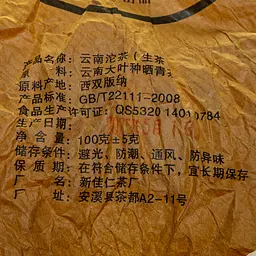 产品名称：云南沱茶（生茶
原　　料：云南大叶种晒青
原料产地：西双版纳
产品标准：GB/T22111-2008
食品生产许可证：QS5320 1401 0784
生产日期：
净 含 量：100克±5克
储存条件：避光、防潮、通风、防异味
保 质 期：在符合储存条件下，宜长期保存
厂　　名：新佳仁茶厂
厂　　址：安溪县茶都A2-11号